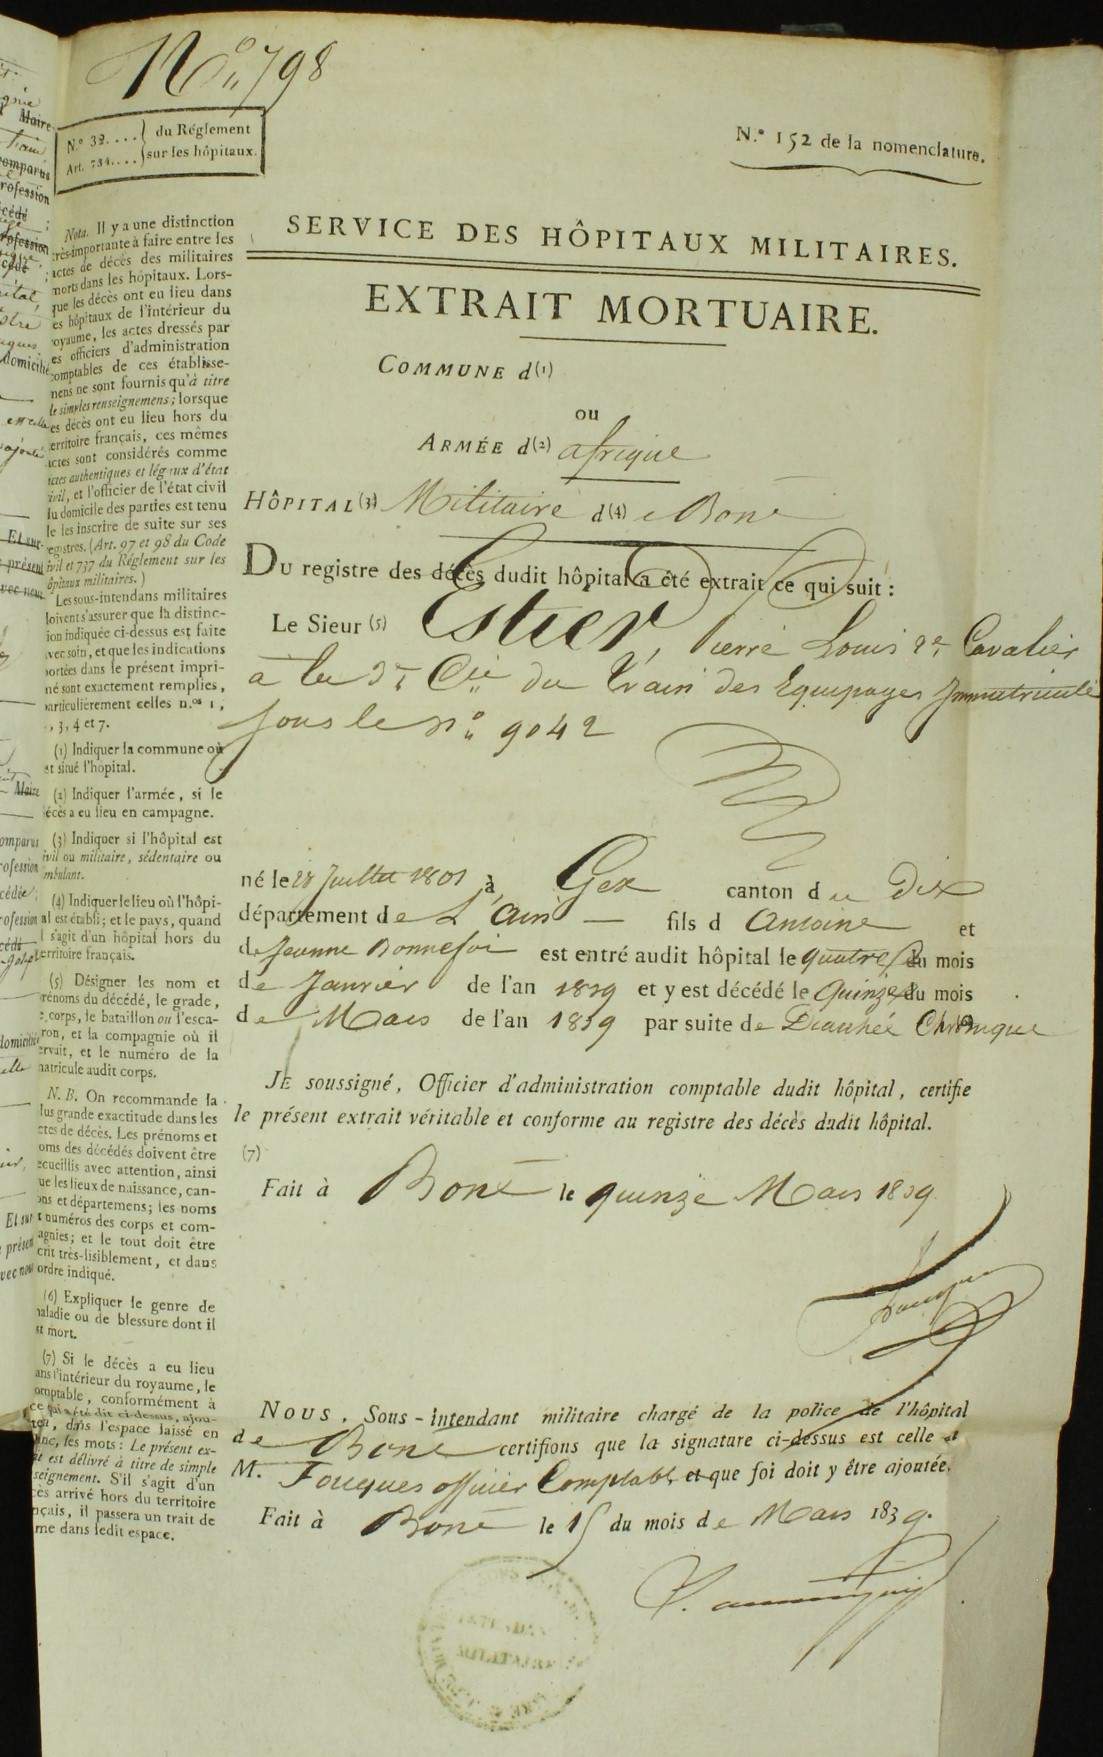 N.º 798
N.º 32.... } du Réglement
Art. 734.... } sur les hôpitaux.
N.º 152 de la nomenclature.
SERVICE DES HÔPITAUX MILITAIRES.
EXTRAIT MORTUAIRE.
COMMUNE d(1)
ou
ARMÉE d(2) afrique
HÔPITAL (3) Militaire d(4) e Bone
DU registre des décès dudit hôpital a été extrait ce qui suit :
Le Sieur (5) Estier, Pierre Louis 2e Cavalier
a la 3e Cie du Train des Equipages Immatriculé
sous le Nº 9042
né le 28 Juillet 1801 à Gex canton d u Dix
département de L'Ain fils d Antoine et
de Jeanne Bonnefoi est entré audit hôpital le quatre du mois
de Janvier de l'an 1839 et y est décédé le Quinze du mois
de Mars de l'an 1839 par suite de Diarrhée Chronique
JE soussigné, Officier d'administration comptable dudit hôpital, certifie
le présent extrait véritable et conforme au registre des décès dudit hôpital.
(7)
Fait à Bone le quinze Mars 1839
Fouques
NOUS, Sous-intendant militaire chargé de la police de l'hôpital
de Bone certifions que la signature ci-dessus est celle d
M. Fouques officier Comptable et que foi doit y être ajoutée.
Fait à Bone le 15 du mois de Mars 1839.
Nota. Il y a une distinction
très-importante à faire entre les
actes de décès des militaires
morts dans les hôpitaux. Lors-
que les décès ont eu lieu dans
es hôpitaux de l'intérieur du
oyaume, les actes dressés par
es officiers d'administration
comptables de ces établisse-
mens ne sont fournis qu'à titre
le simples renseignemens ; lorsque
es décès ont eu lieu hors du
erritoire français, ces mêmes
actes sont considérés comme
actes authentiques et légaux d'état
civil, et l'officier de l'état civil
du domicile des parties est tenu
le les inscrire de suite sur ses
registres. (Art. 97 et 98 du Code
ivil et 737 du Réglement sur les
ôpitaux militaires.)
Les sous-intendans militaires
doivent s'assurer que la distinc-
ion indiquée ci-dessus est faite
avec soin, et que les indications
portées dans le présent impri-
mé sont exactement remplies,
particulièrement celles n.os 1,
, 3, 4 et 7.
(1) Indiquer la commune où
est situé l'hôpital.
(2) Indiquer l'armée, si le
décès a eu lieu en campagne.
(3) Indiquer si l'hôpital est
ivil ou militaire, sédentaire ou
mbulant.
(4) Indiquer le lieu où l'hôpi-
al est établi ; et le pays, quand
il s'agit d'un hôpital hors du
erritoire français.
(5) Désigner les nom et
prénoms du décédé, le grade,
e corps, le bataillon ou l'esca-
ron, et la compagnie où il
ervait, et le numéro de la
matricule audit corps.
N. B. On recommande la
lus grande exactitude dans les
ctes de décès. Les prénoms et
oms des décédés doivent être
ecueillis avec attention, ainsi
ue les lieux de naissance, can-
ons et départemens ; les noms
t numéros des corps et com-
agnies ; et le tout doit être
crit très-lisiblement, et dans
ordre indiqué.
(6) Expliquer le genre de
maladie ou de blessure dont il
est mort.
(7) Si le décès a eu lieu
ans l'intérieur du royaume, le
omptable, conformément à
ce qui a été dit ci-dessus, ajou-
tera, dans l'espace laissé en
blanc, les mots : Le présent ex-
ait est délivré à titre de simple
seignement. S'il s'agit d'un
cès arrivé hors du territoire
nçais, il passera un trait de
me dans ledit espace.